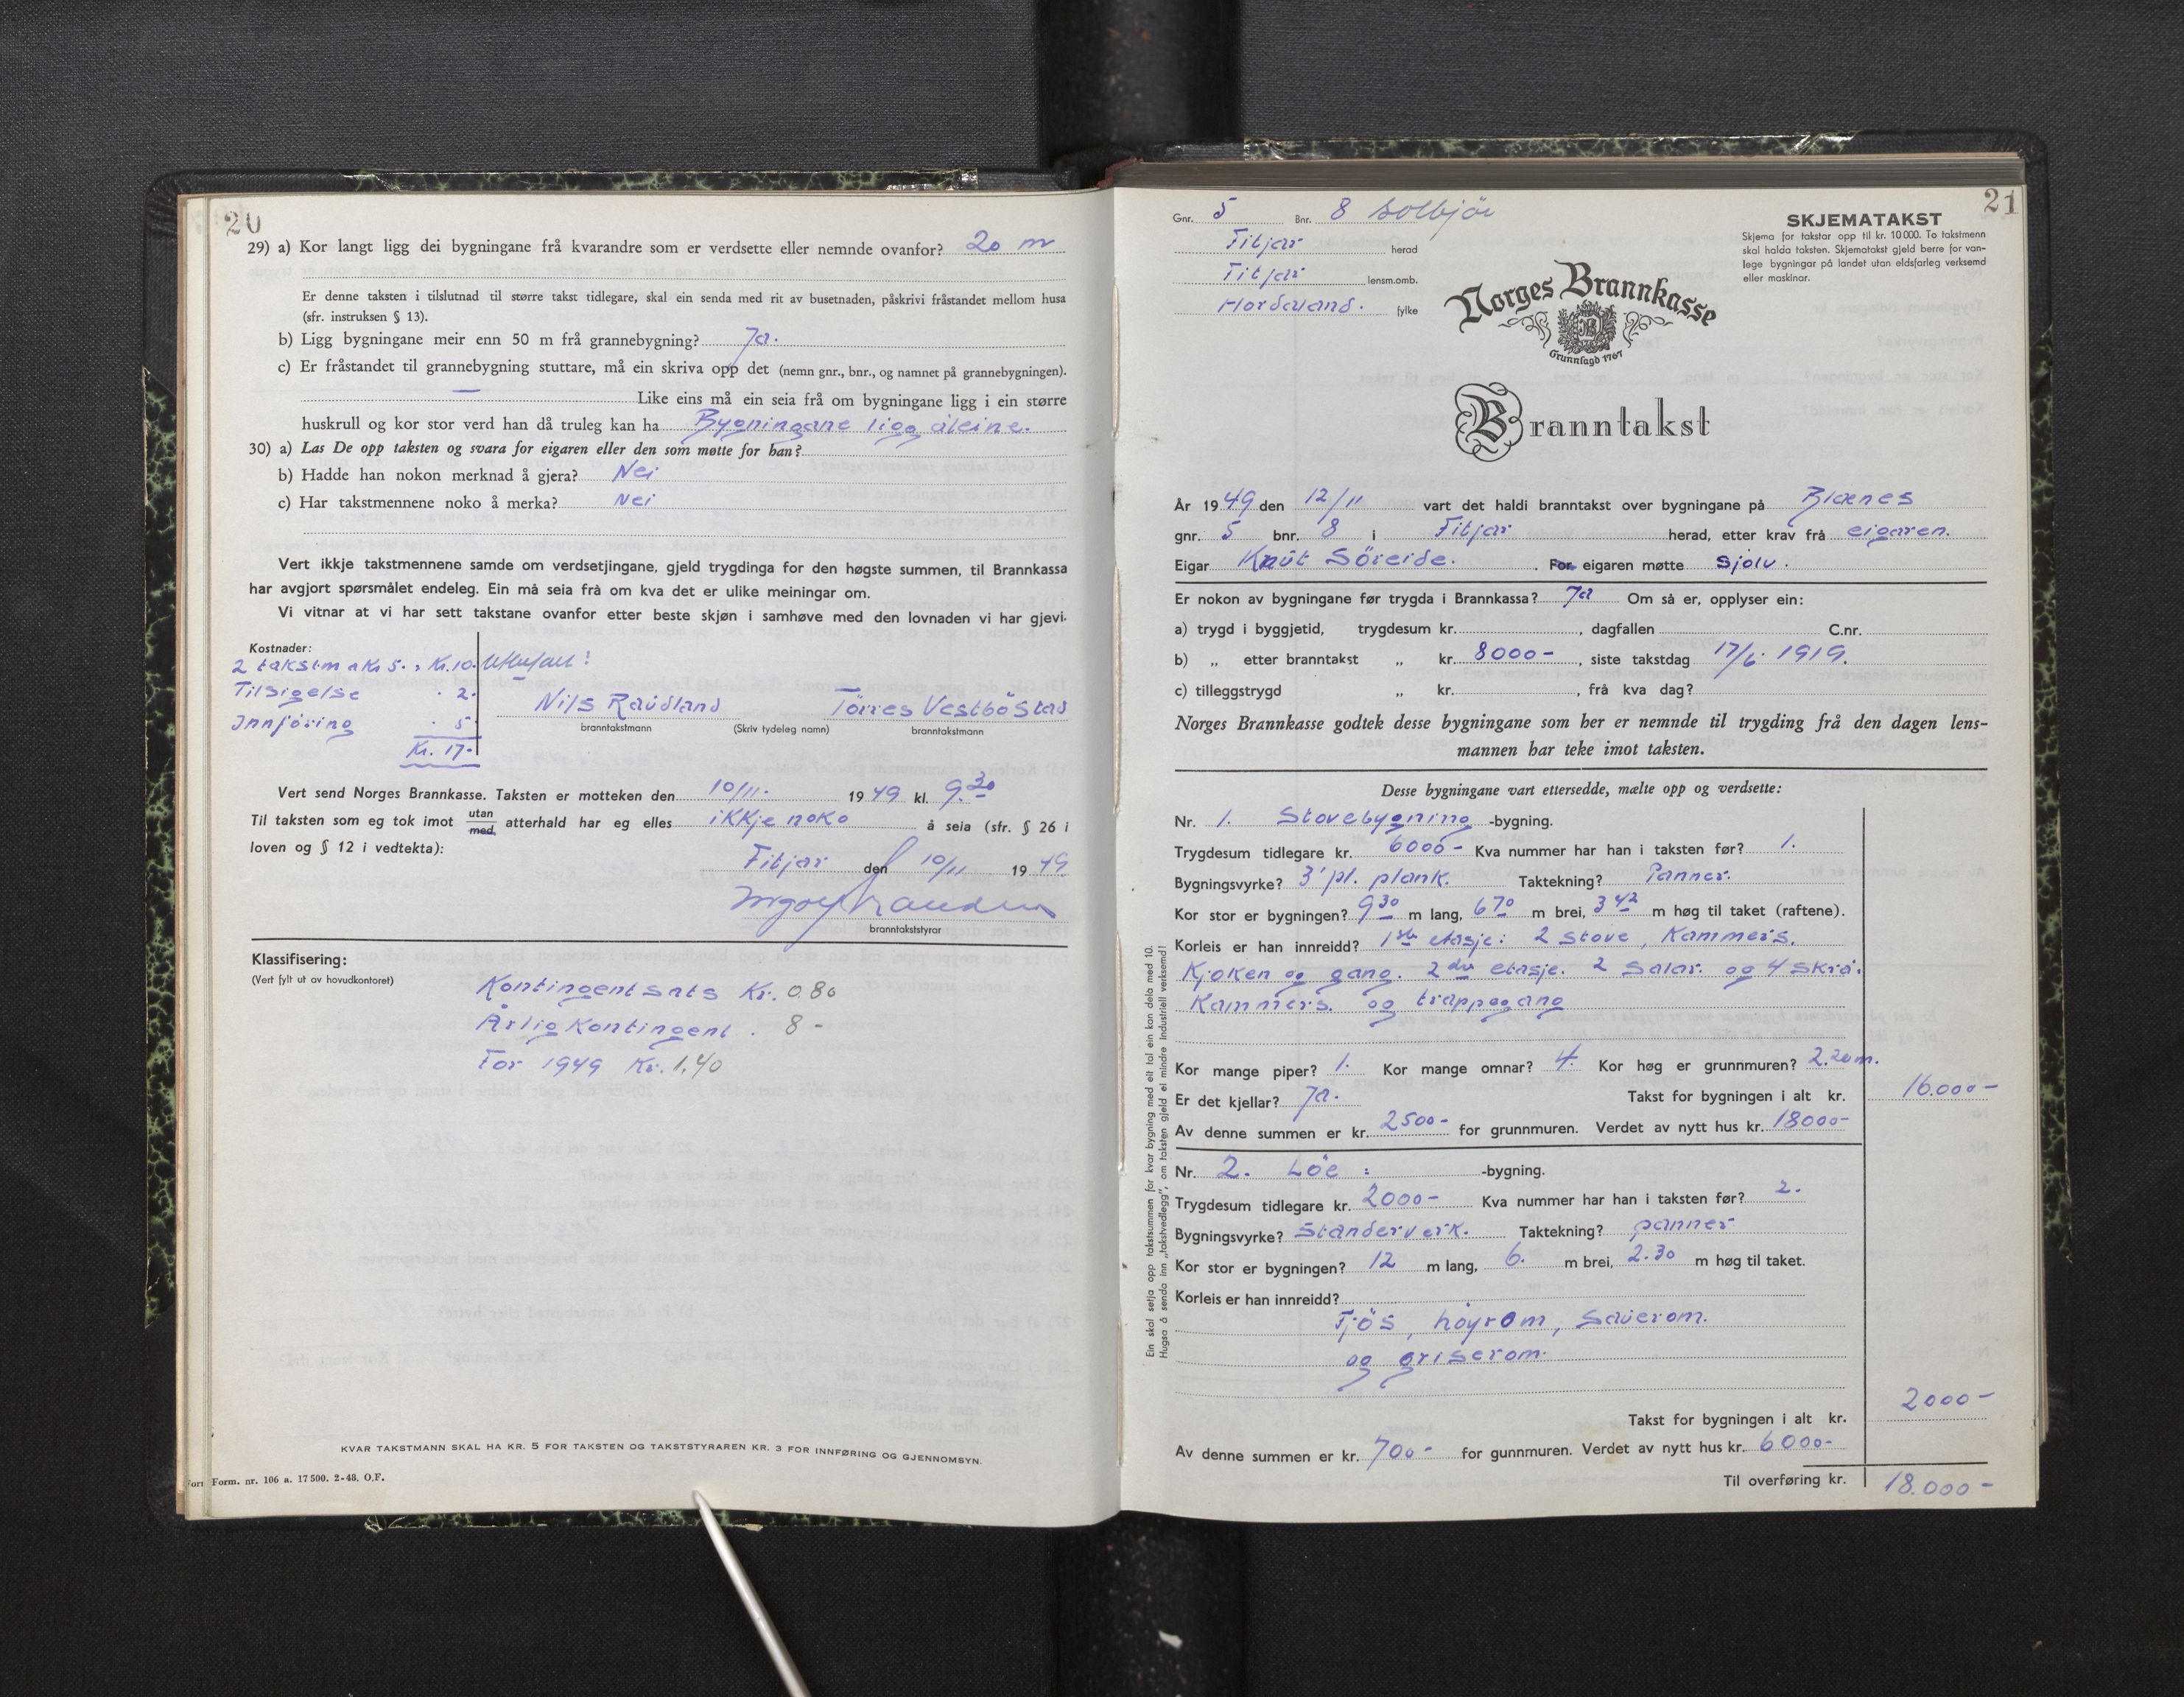 20
29) a) Kor langt ligg dei bygningane frå kvarandre som er verdsette eller nemnde ovanfor? 20 m
Er denne taksten i tilslutnad til større takst tidlegare, skal ein senda med rit av busetnaden, påskrivi fråstandet mellom husa
(sfr. instruksen § 13).
b) Ligg bygningane meir enn 50 m frå grannebygning? Ja.
c) Er fråstandet til grannebygning stuttare, må ein skriva opp det (nemn gnr., bnr., og namnet på grannebygningen).
— Like eins må ein seia frå om bygningane ligg i ein større
huskrull og kor stor verd han då truleg kan ha Bygningane ligg åleine.
30) a) Las De opp taksten og svara for eigaren eller den som møtte for han?
b) Hadde han nokon merknad å gjera? Nei
c) Har takstmennene noko å merka? Nei
Vert ikkje takstmennene samde om verdsetjingane, gjeld trygdinga for den høgste summen, til Brannkassa
har avgjort spørsmålet endeleg. Ein må seia frå om kva det er ulike meiningar om.
Vi vitnar at vi har sett takstane ovanfor etter beste skjøn i samhøve med den lovnaden vi har gjevi.
Kostnader:
2 takstm a Kr 5. : Kr. 10.
Tilsigelse . 2.
Innføring . 5.
Kr. 17.
Nils Raudland Törres Vestböstad
branntakstmann (Skriv tydeleg namn) branntakstmann
Vert send Norges Brannkasse. Taksten er motteken den 10/11. 1949 kl. 9.30
Til taksten som eg tok imot utan med atterhald har eg elles ikkje noko å seia (sfr. § 26 i
loven og § 12 i vedtekta):
Fitjar den 10/11 1949
branntakststyrar
Klassifisering:
(Vert fylt ut av hovudkontoret)
Kontingentsats Kr. 0.80
Årlig Kontingent . 8 -
For 1949 Kr. 1.40
KVAR TAKSTMANN SKAL HA KR. 5 FOR TAKSTEN OG TAKSTSTYRAREN KR. 3 FOR INNFØRING OG GJENNOMSYN.
Form. nr. 106 a. 17500. 2-48. O.F.
21
Gnr. 5 Bnr. 8 Solbjör
Fitjar herad
Fitjar lensm.omb.
Hordaland. fylke
SKJEMATAKST
Skjema for takstar opp til kr. 10000. To takstmenn
skal halda taksten. Skjematakst gjeld berre for van-
lege bygningar på landet utan eldsfarleg verksemd
eller maskinar.
Norges Brannkasse
Grunnlagd 1767
Branntakst
År 1949 den 12/11 vart det haldi branntakst over bygningane på Blænes
gnr. 5 bnr. 8 i Fitjar herad, etter krav frå eigaren.
Eigar Knut Söreide. For eigaren møtte sjølv.
Er nokon av bygningane før trygda i Brannkassa? Ja Om så er, opplyser ein:
a) trygd i byggjetid, trygdesum kr. , dagfallen C.nr.
b) „ etter branntakst „ kr. 8000- , siste takstdag 17/6 1919.
c) tilleggstrygd „ kr. , frå kva dag?
Norges Brannkasse godtek desse bygningane som her er nemnde til trygding frå den dagen lens-
mannen har teke imot taksten.
Desse bygningane vart ettersedde, mælte opp og verdsette:
Nr. 1. Stovebygning -bygning.
Trygdesum tidlegare kr. 6000- Kva nummer har han i taksten før? 1.
Bygningsvyrke? 3" pl. plank. Taktekning? Panner.
Kor stor er bygningen? 9.30 m lang, 6.70 m brei, 3.42 m høg til taket (raftene).
Korleis er han innreidd? 1ste etasje: 2 stove, Kammers,
Kjøken og gang. 2dre etasje. 2 Salar. og 4 skrå.
Kammers. og trappegang
Kor mange piper? 1. Kor mange omnar? 4. Kor høg er grunnmuren? 2.20 m.
Er det kjellar? Ja. Takst for bygningen i alt kr. 16.000-
Av denne summen er kr. 2500- for grunnmuren. Verdet av nytt hus kr. 18000-
Nr. 2. Löe : -bygning.
Trygdesum tidlegare kr. 2000- Kva nummer har han i taksten før? 2.
Bygningsvyrke? Standerverk. Taktekning? panner
Kor stor er bygningen? 12 m lang, 6. m brei, 2.30 m høg til taket.
Korleis er han innreidd?
Fjös, høyrom, Sauerom.
og griserom.
Takst for bygningen i alt kr. 2000-
Av denne summen er kr. 700- for gunnmuren. Verdet av nytt hus kr. 6000-
Til overføring kr. 18.000-
Ein skal setja opp takstsummen for kvar bygning med eit tal ein kan dela med 10.
Hugsa å senda inn „takstvedlegg", om taksten gjeld ei mindre industriell verksemd!